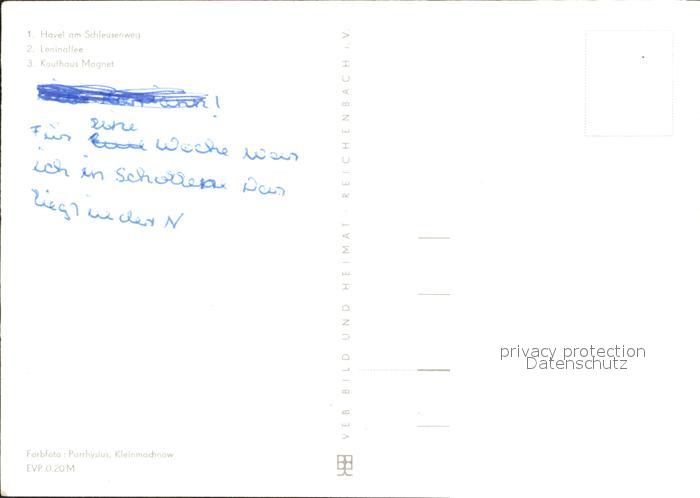 1. Havel am Schleusenweg
2. Leninallee
3. Kaufhaus Magnet
eine
Für Woche war
ich in Schollene Das
liegt in der N
VEB BILD UND HEIMAT · REICHENBACH i. V.
privacy protection
Datenschutz
Farbfoto: Parrhysius, Kleinmachnow
EVP 0,20 M